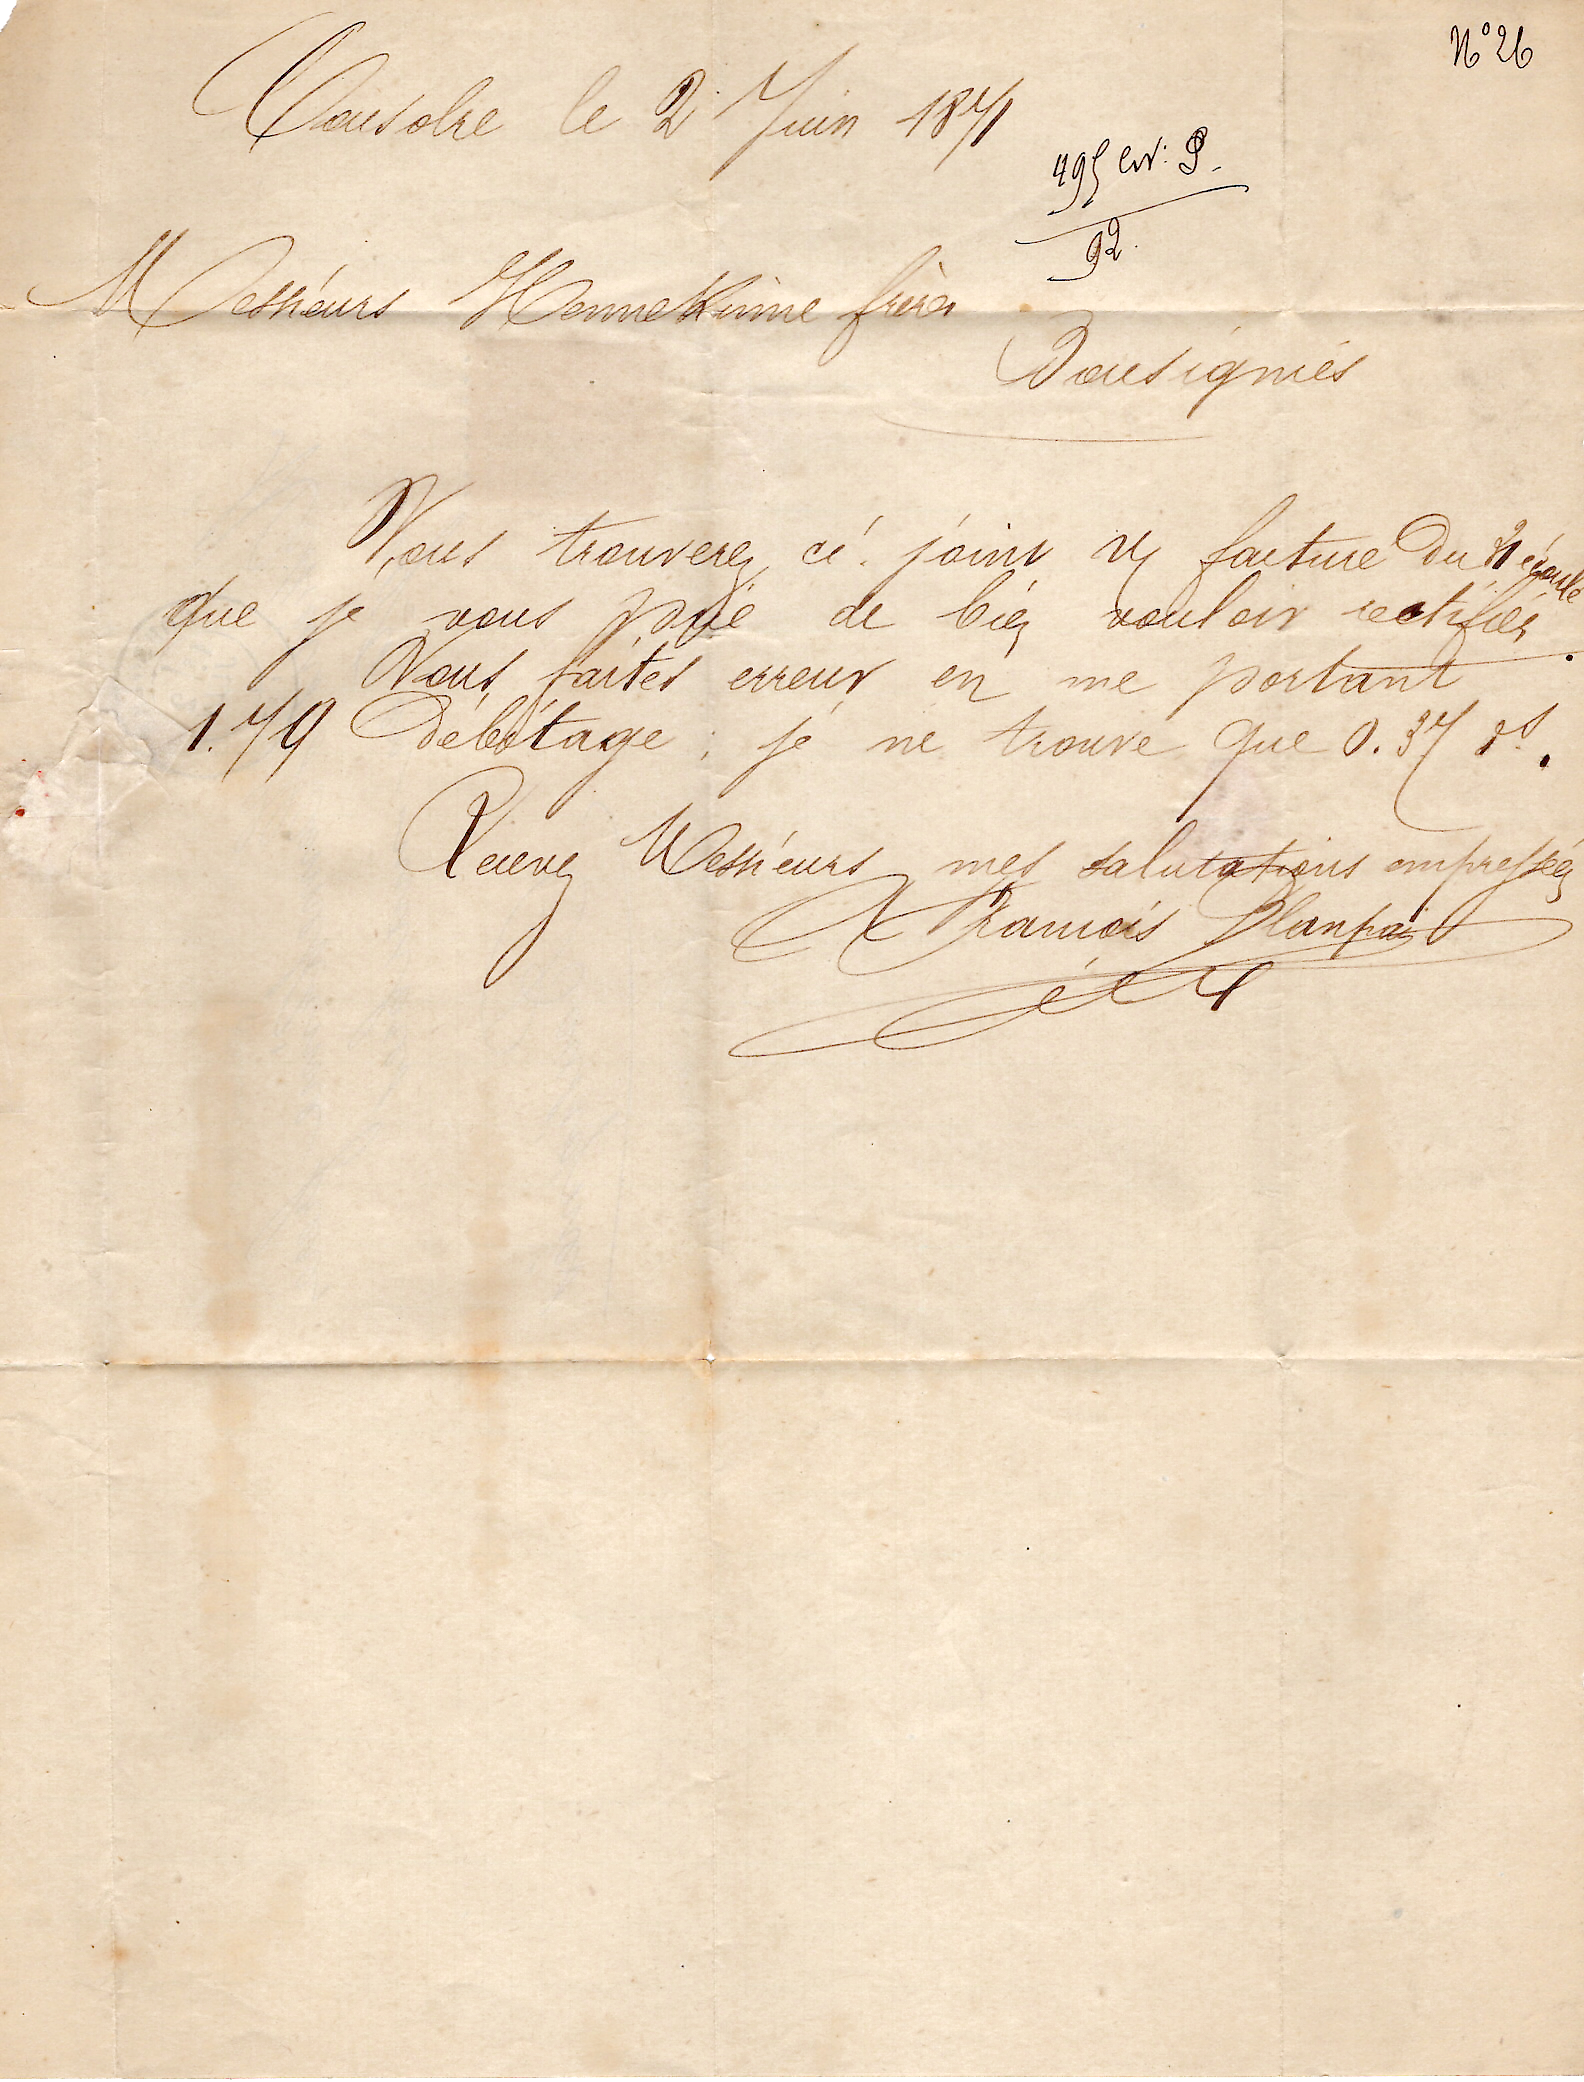 N° 26
Cousolre le 2 Juin 1871
495 Cor: P.
92.
Messieurs Hennekinne frères
Bousignies
Vous trouverez ci joint v/ facture du 21 écoulé
que je vous prie de bien vouloir rectifier.
Vous faites erreur en me portant
1.79 débitage ; je ne trouve que 0.37 ds.
Recevez Messieurs mes salutations empressées
François